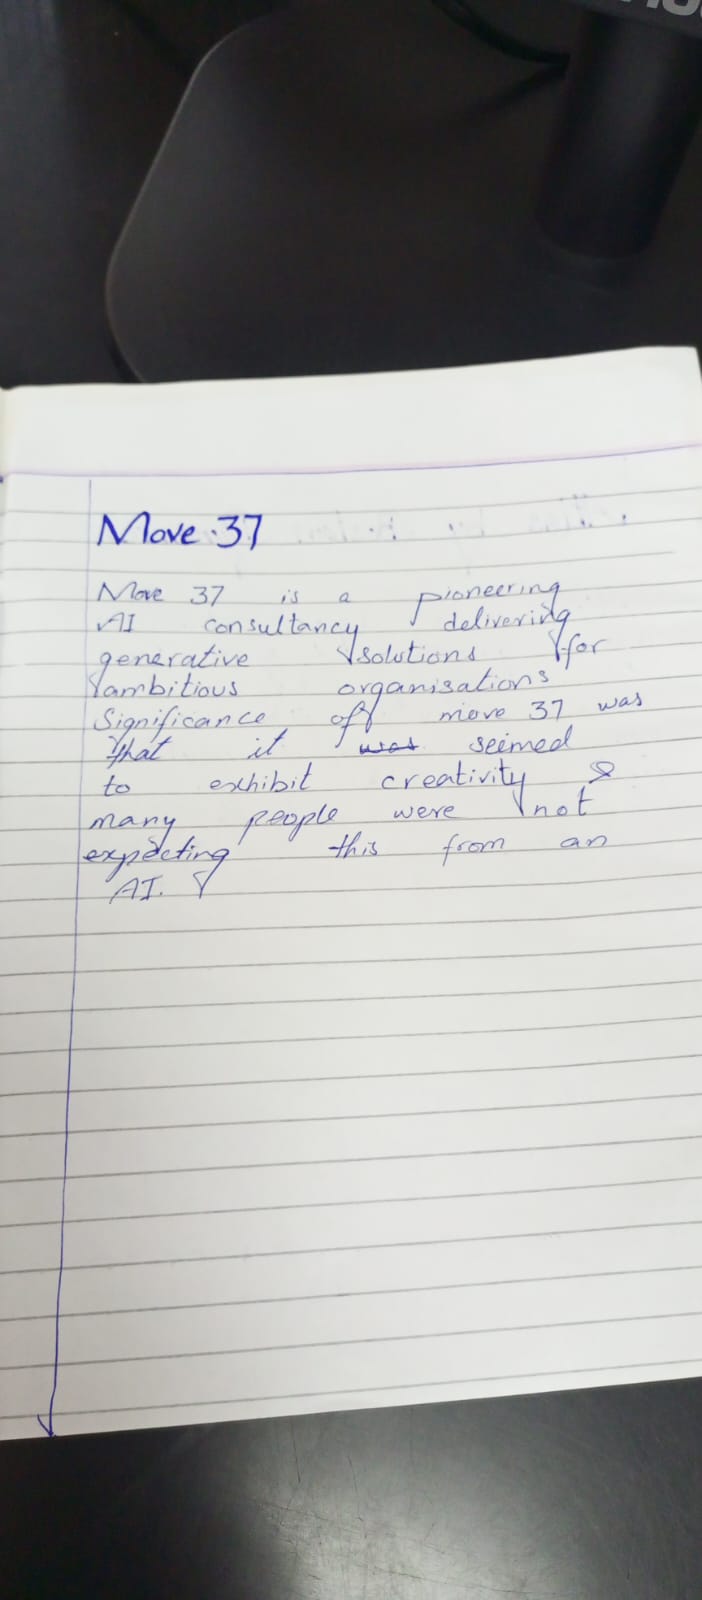 Move 37
Move 37 is a pioneering
AI consultancy delivering
generative solutions for
ambitious organisations
Significance of move 37 was
that it ~~was~~ seemed
to exhibit creativity &
many people were not
expecting this from an
AI.